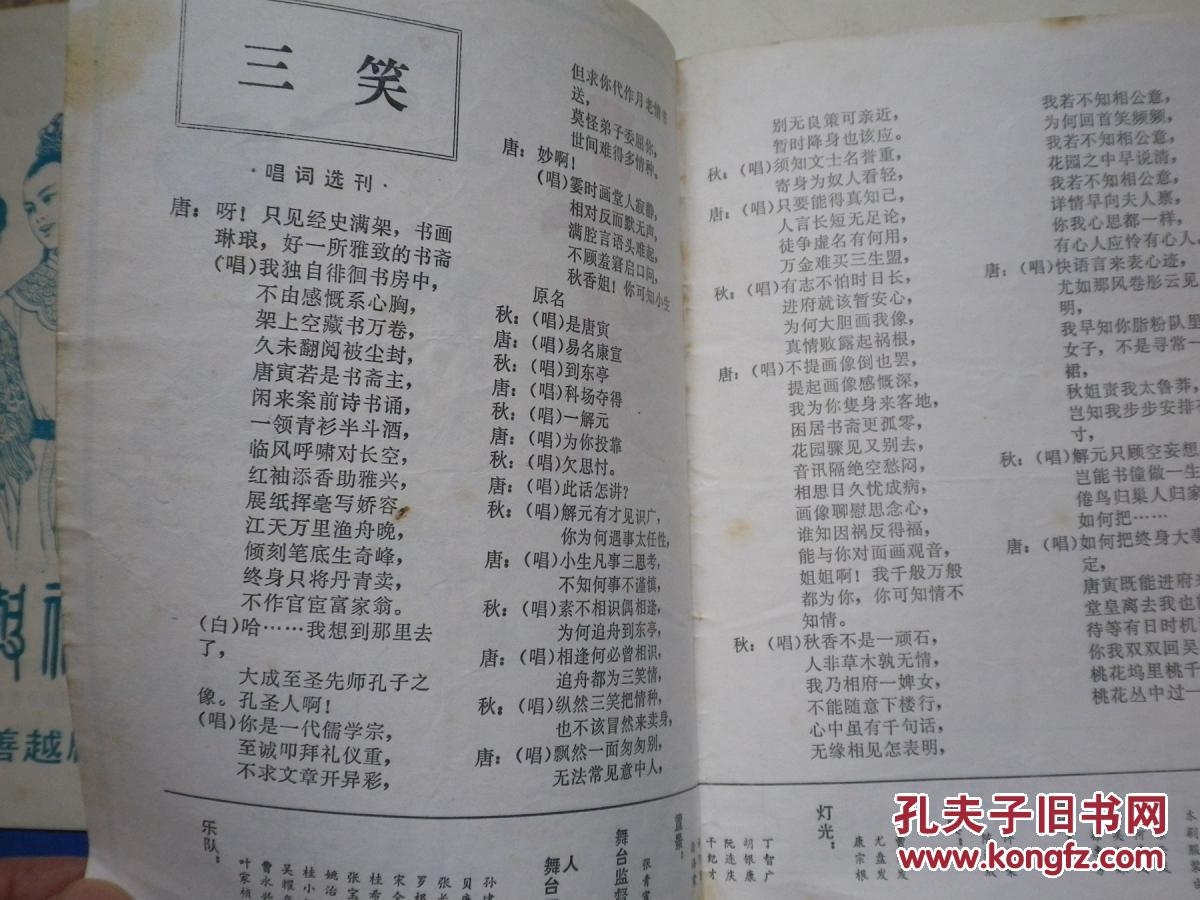 三 笑
·唱词选刊·
唐：呀！只见经史满架，书画
琳琅，好一所雅致的书斋
（唱）我独自徘徊书房中，
不由感慨系心胸，
架上空藏书万卷，
久未翻阅被尘封，
唐寅若是书斋主，
闲来案前诗书诵，
一领青衫半斗酒，
临风呼啸对长空，
红袖添香助雅兴，
展纸挥毫写娇容，
江天万里渔舟晚，
倾刻笔底生奇峰，
终身只将丹青卖，
不作官宦富家翁。
（白）哈……我想到那里去
了，
大成至圣先师孔子之
像。孔圣人啊！
（唱）你是一代儒学宗，
至诚叩拜礼仪重，
不求文章开异彩，
但求你代作月老情书
送，
莫怪弟子委屈你，
世间难得多情种。
唐：妙啊！
（唱）霎时画堂人寂静，
相对反而默无声，
满腔言语头难起，
不顾羞窘启口问，
秋香姐！你可知小生
原名
秋：（唱）是唐寅
唐：（唱）易名康宣
秋：（唱）到东亭
唐：（唱）科场夺得
秋：（唱）一解元
唐：（唱）为你投靠
秋：（唱）欠思忖。
唐：（唱）此话怎讲？
秋：（唱）解元有才见识广，
你为何遇事太任性，
唐：（唱）小生凡事三思考，
不知何事不谨慎，
秋：（唱）素不相识偶相逢，
为何追舟到东亭，
唐：（唱）相逢何必曾相识，
追舟都为三笑情，
秋：（唱）纵然三笑把情种，
也不该冒然来卖身，
唐：（唱）飘然一面匆匆别，
无法常见意中人，
别无良策可亲近，
暂时降身也该应。
秋：（唱）须知文士名誉重，
寄身为奴人看轻，
唐：（唱）只要能得真知己，
人言长短无足论，
徒争虚名有何用，
万金难买三生盟，
秋：（唱）有志不怕时日长，
进府就该暂安心，
为何大胆画我像，
真情败露起祸根，
唐：（唱）不提画像倒也罢，
提起画像感慨深，
我为你隻身来客地，
困居书斋更孤零，
花园骤见又别去，
音讯隔绝空愁闷，
相思日久忧成病，
画像聊慰思念心，
谁知因祸反得福，
能与你对面画观音，
姐姐啊！我千般万般
都为你，你可知情不
知情。
秋：（唱）秋香不是一顽石，
人非草木孰无情，
我乃相府一婢女，
不能随意下楼行，
心中虽有千句话，
无缘相见怎表明，
我若不知相公意，
为何回首笑频频，
我若不知相公意，
花园之中早说清，
我若不知相公意，
详情早向夫人禀，
你我心思都一样，
有心人应怜有心人，
唐：（唱）快语言来表心迹，
尤如那风卷彤云见
明，
我早知你脂粉队里
女子，不是寻常一
裙，
秋姐责我太鲁莽，
岂知我步步安排
寸，
秋：（唱）解元只顾空妄想
岂能书僮做一生
倦鸟归巢人归家
如何把……
唐：（唱）如何把终身大事
定，
唐寅既能进府
堂皇离去我也
待等有日时机
你我双双回吴
桃花坞里桃千
桃花丛中过一
乐队：
叶家桢
舞台监督
灯光：
丁智广
胡银康
阮连庆
干纪才
尤盘发
康宗根
善越
孔夫子旧书网
KONGFZ.COM